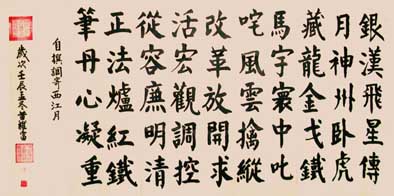 銀漢飛星傳
月神州卧虎
藏龍金戈鐵
馬宇寰中叱
咤風雲擒縱
改革放開求
活宏觀調控
從容廉明清
正法爐紅鐵
筆丹心凝重
自撰調寄西江月
歲次壬辰孟冬